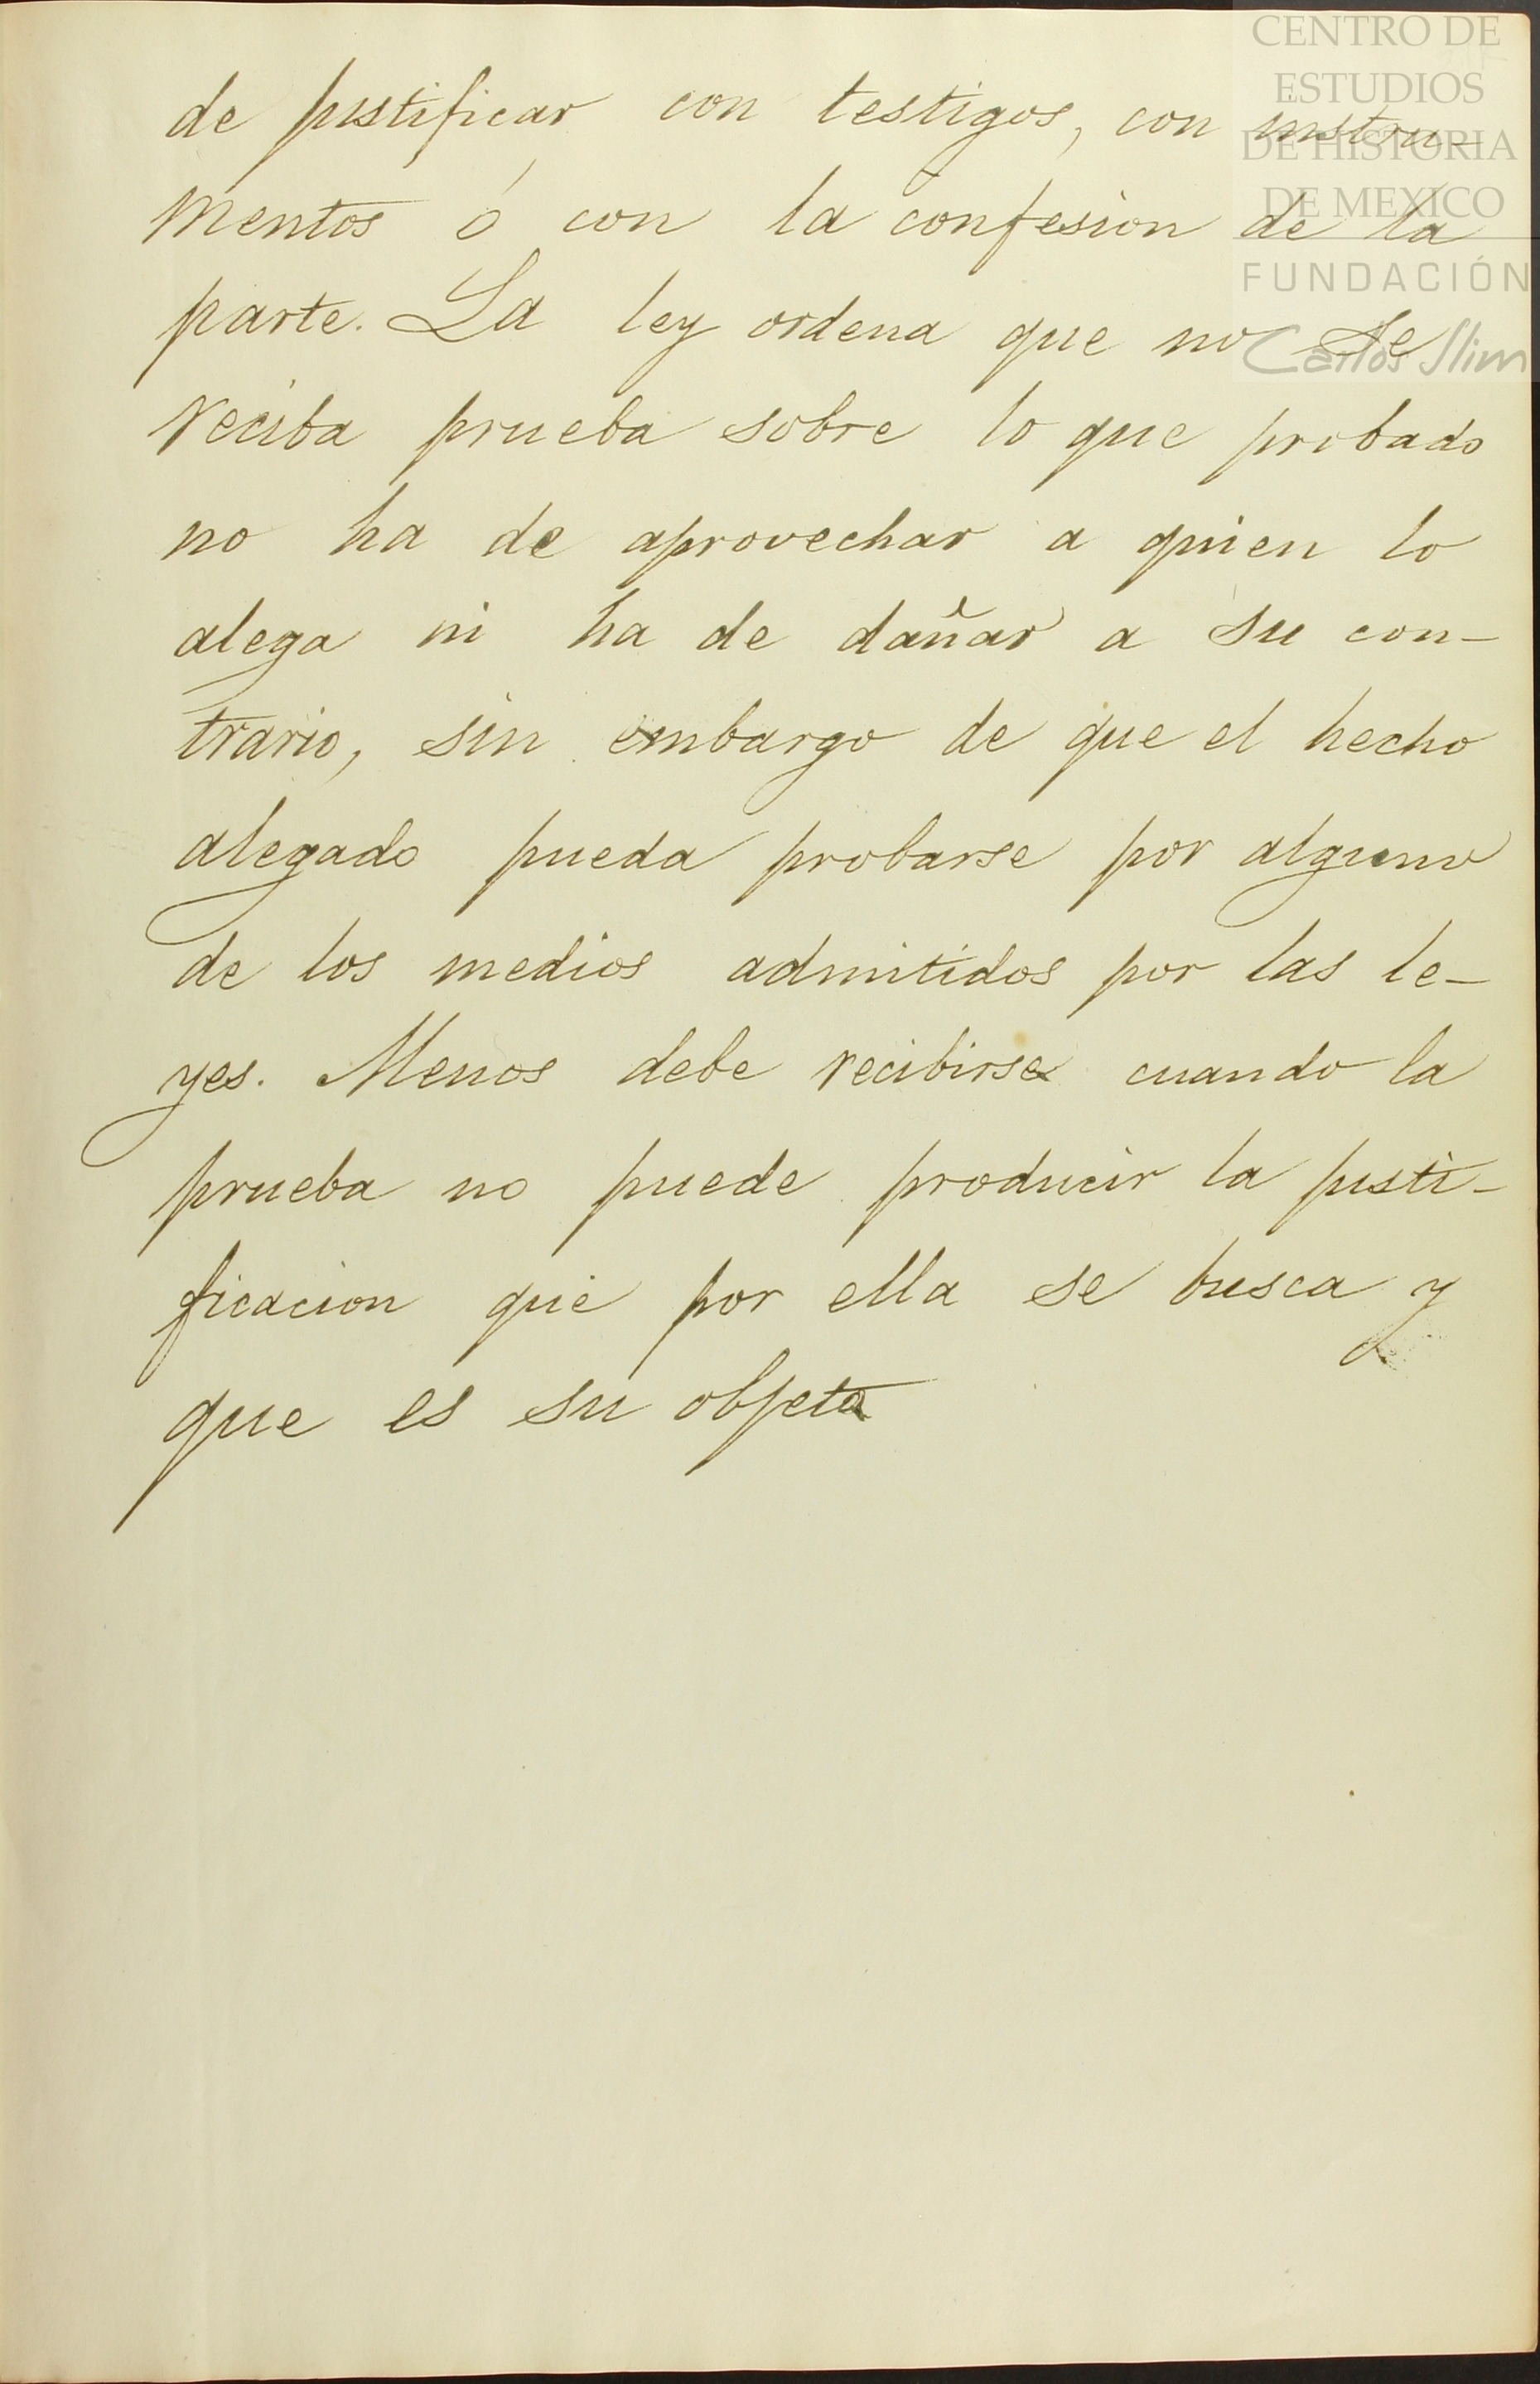 CENTRO DE
ESTUDIOS
DE HISTORIA
DE MEXICO
FUNDACIÓN
Carlos Slim
de justificar con testigos, con instru-
mentos ó con la confesion de la
parte. La ley ordena que no se
reciba prueba sobre lo que probado
no ha de aprovechar a quien lo
alega ni ha de dañar a su con-
trario, sin embargo de que el hecho
alegado pueda probarse por alguno
de los medios admitidos por las le-
yes. Menos debe recibirse cuando la
prueba no puede producir la justi-
ficacion que por ella se busca y
que es su objeto